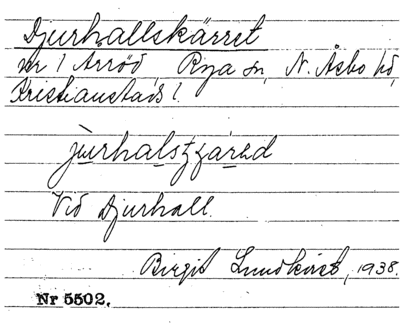 Djurhallskärret
nr 1 Arröd, Rya sn, N. Åsbo hd,
Kristianstads l.
Vid Djurhall.
Birgit Lundkvist, 1938.
Nr 5502.